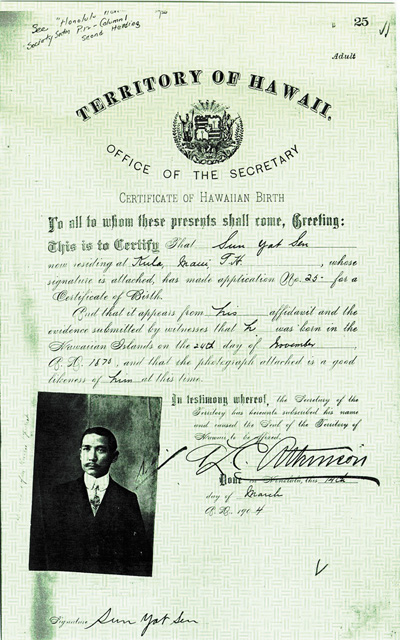 See "Honolulu
Society Seeks Pro-Column
Second Heading
25
Adult
TERRITORY OF HAWAII.
OFFICE OF THE SECRETARY
CERTIFICATE OF HAWAIIAN BIRTH
To all to whom these presents shall come, Greeting:
This is to Certify That Sun Yat Sen
now residing at Kula, Maui, T.H. , whose
signature is attached, has made application No. 25 for a
Certificate of Birth.
And that it appears from his affidavit and the
evidence submitted by witnesses that h was born in the
Hawaiian Islands on the 24th day of November
A.D. 1870, and that the photograph attached is a good
likeness of him at this time.
In testimony whereof, the Secretary of the
Territory has hereunto subscribed his name
and caused the Seal of the Territory of
Hawaii to be affixed.
A L C Atkinson
Done in Honolulu, this 14th
day of March
A.D. 1904
Signature Sun Yat Sen